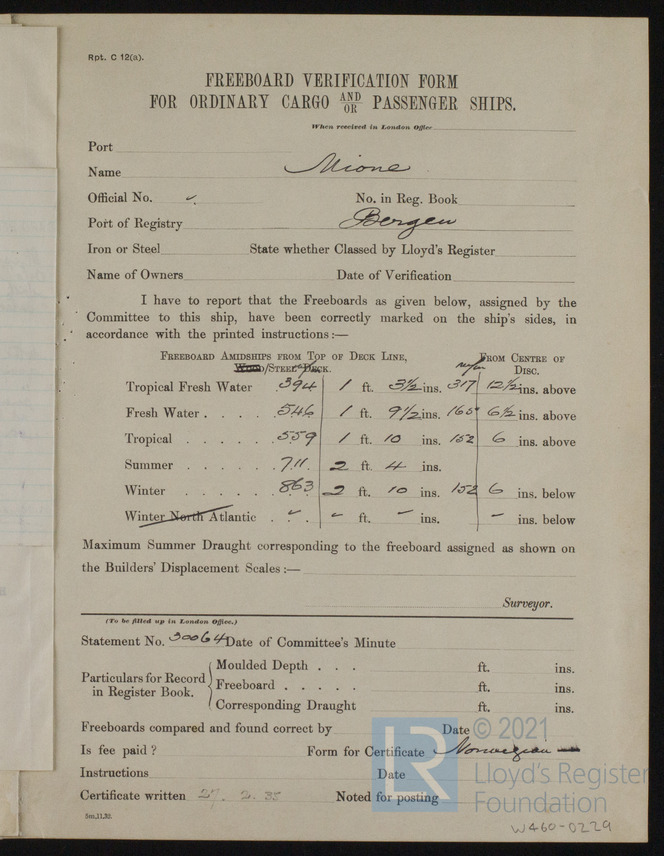 Rpt. C 12(a).
FREEBOARD VERIFICATION FORM
FOR ORDINARY CARGO AND/OR PASSENGER SHIPS.
When received in London Office
Port
Name Mione
Official No. No. in Reg. Book
Port of Registry Bergen
Iron or Steel State whether Classed by Lloyd's Register
Name of Owners Date of Verification
I have to report that the Freeboards as given below, assigned by the
Committee to this ship, have been correctly marked on the ship's sides, in
accordance with the printed instructions:—
FREEBOARD AMIDSHIPS FROM TOP OF DECK LINE, FROM CENTRE OF
WOOD/STEEL DECK. DISC.
Tropical Fresh Water 394 1 ft. 3½ ins. 317 12½ ins. above
Fresh Water 546 1 ft. 9½ ins. 165 6½ ins. above
Tropical 559 1 ft. 10 ins. 152 6 ins. above
Summer 711. 2 ft. 4 ins.
Winter 863 2 ft. 10 ins. 152 6 ins. below
Winter North Atlantic - ft. - ins. - ins. below
Maximum Summer Draught corresponding to the freeboard assigned as shown on
the Builders' Displacement Scales:—
Surveyor.
(To be filled up in London Office.)
Statement No. 30064 Date of Committee's Minute
Particulars for Record in Register Book.
Moulded Depth . . . ft. ins.
Freeboard . . . . . ft. ins.
Corresponding Draught ft. ins.
Freeboards compared and found correct by Date
Is fee paid? Form for Certificate Norwegian
Instructions Date
Certificate written 27. 2. 35 Noted for posting
5m,11,32.
LR
© 2021
Lloyd's Register
Foundation
W460-0229